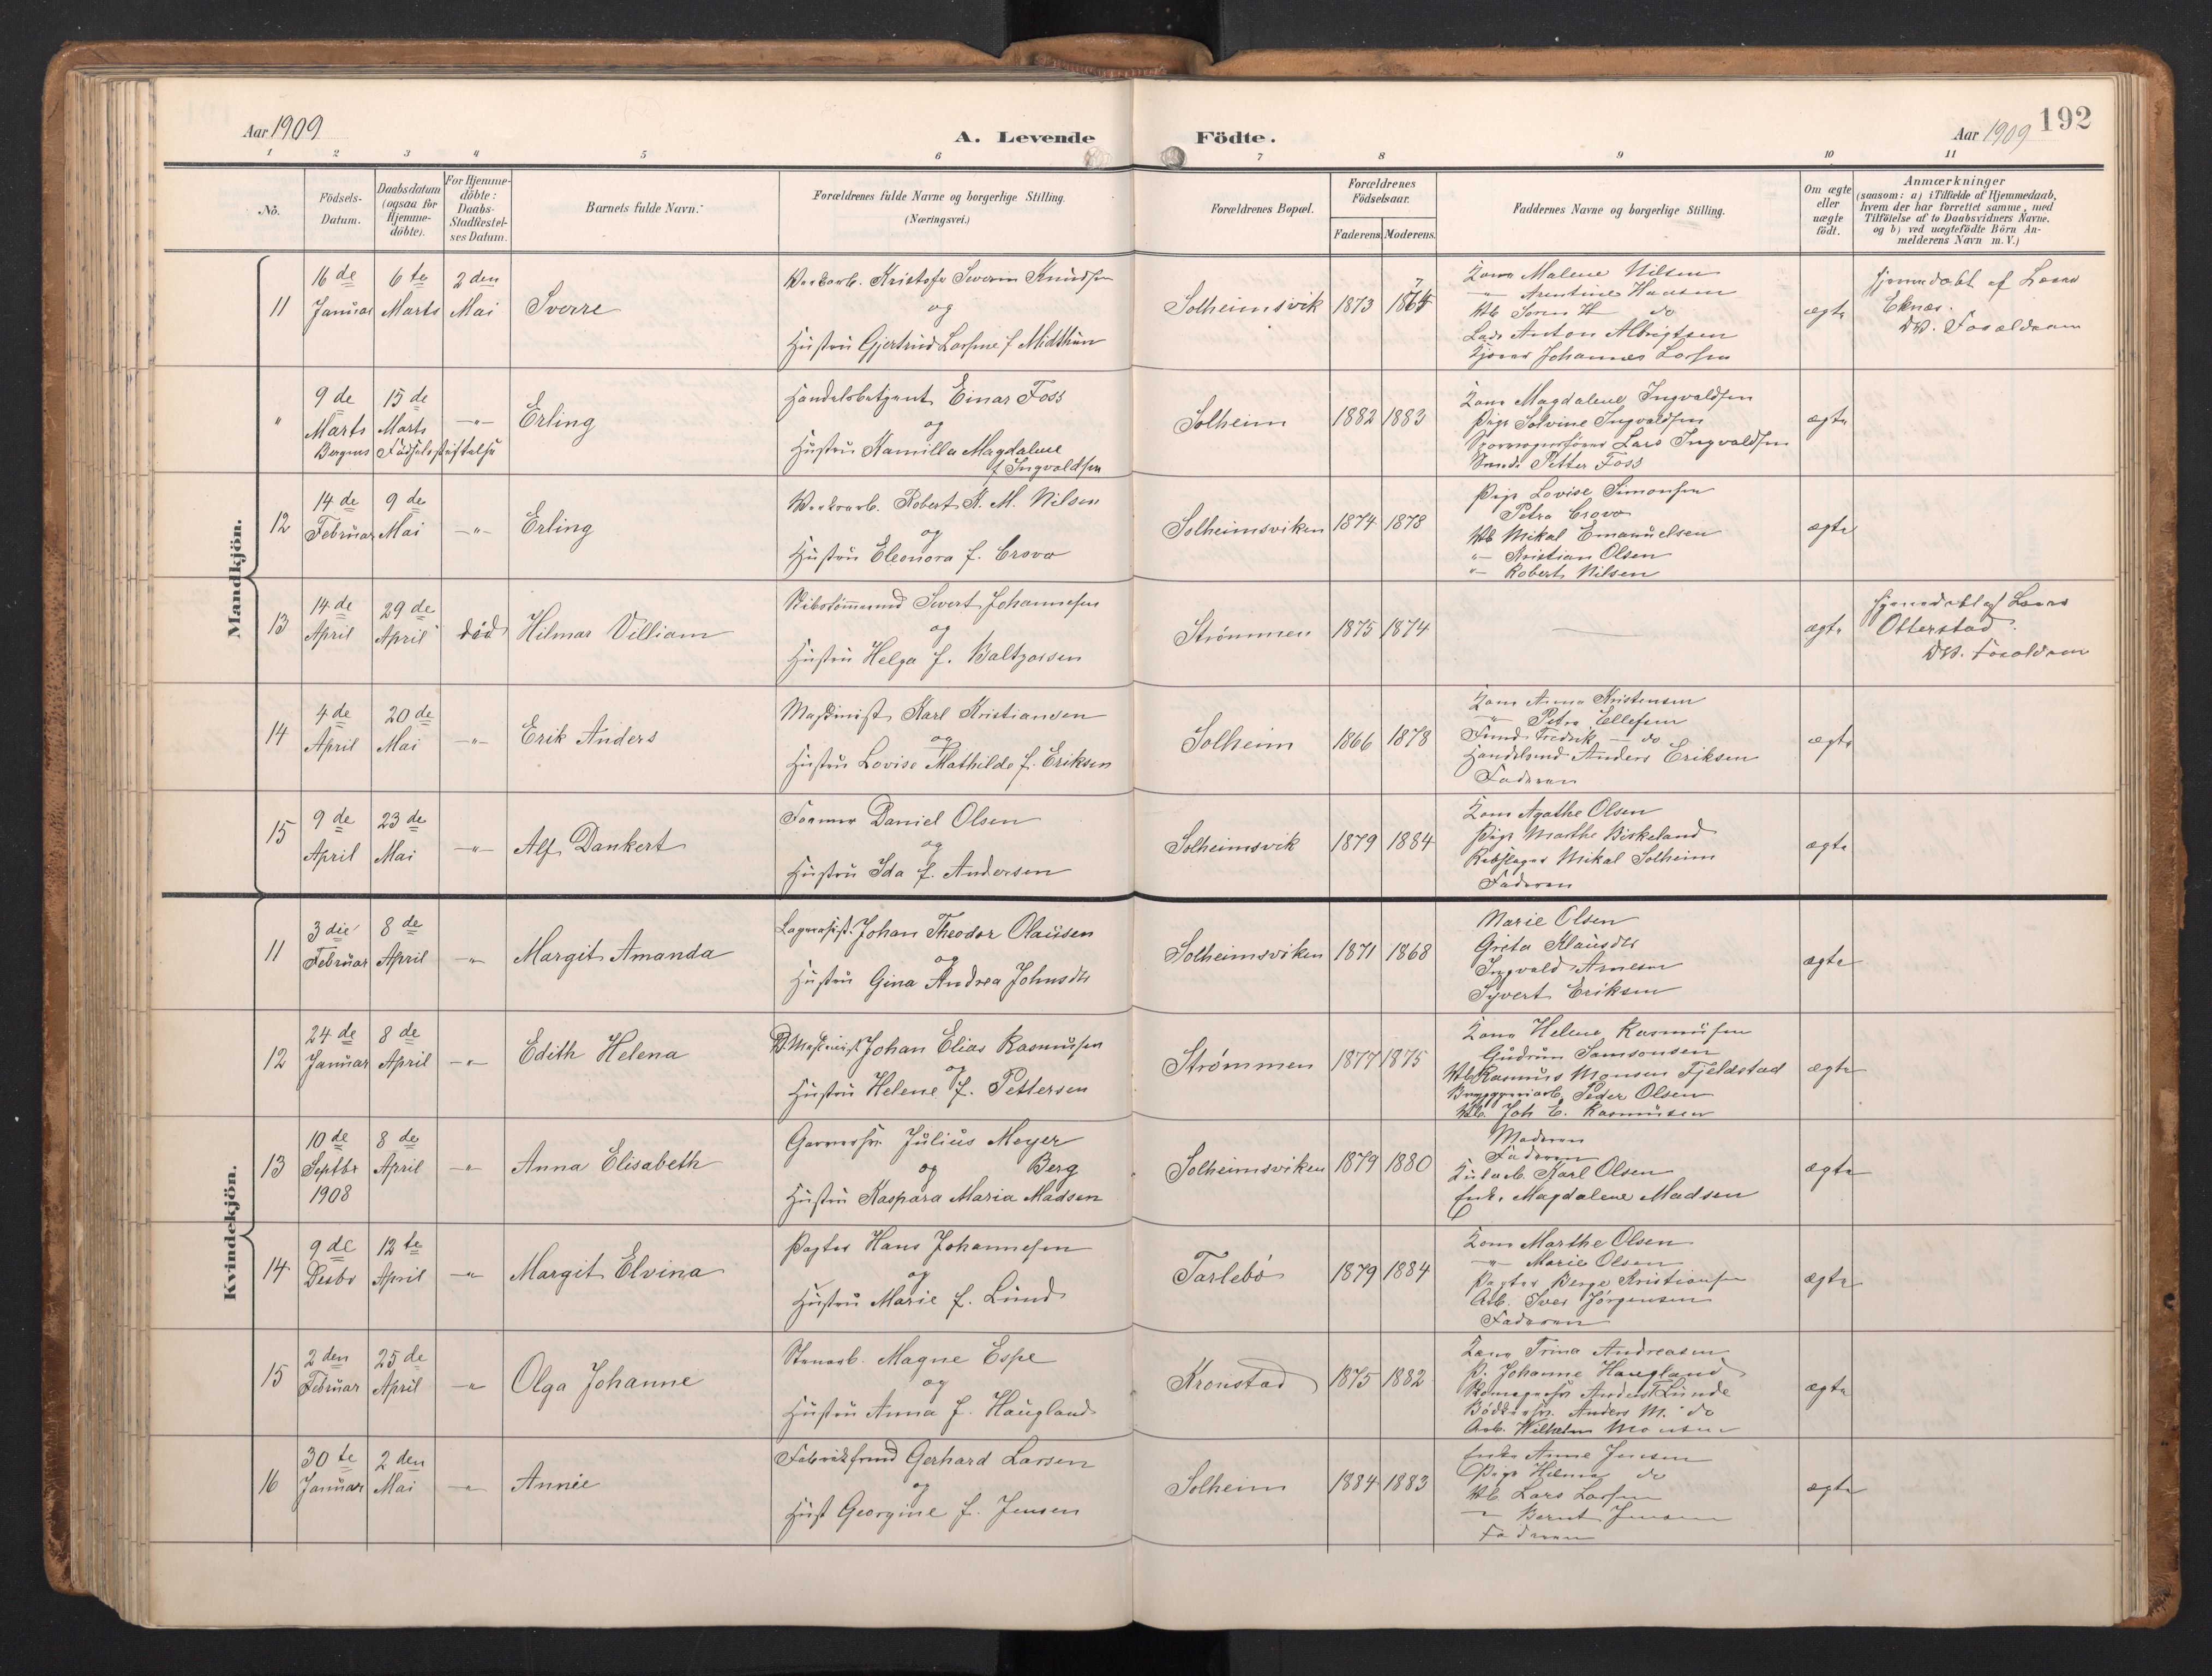 Aar 1909
A. Levende Födte.
Aar 1909
192
1 2 3 4 5 6 7 8 9 10 11
No.
Födsels-Datum.
Daabsdatum (ogsaa for Hjemme-döbte).
For Hjemme-döbte: Daabs-Stadfæstel-ses Datum.
Barnets fulde Navn.
Forældrenes fulde Navne og borgerlige Stilling.
(Næringsvei.)
Forældrenes Bopæl.
Forældrenes Födselsaar.
Faderens Moderens
Faddernes Navne og borgerlige Stilling.
Om ægte eller uægte födt.
Anmærkninger
(saasom: a) i Tilfælde af Hjemmedaab, hvem der har forrettet samme, med Tilföielse af to Daabsvidners Navne, og b) ved uægtefödte Börn An-melderens Navn m. V.)
Mandkjön.
11
16 de Januar
6 te Marts
2 den Mai
Sverre
Kristofer Severin Knudsen
og
Hustru Gjertrud f. Midthun
Solheimsvik
1873
Kone Malene Nilsen
Arentine Hansen
Søren H do
Anton Albrigtsen
Johannes
ægte
Hjemmedøbt af
Eknæs.
DV. Forældrene
"
9 de Marts
15 de Marts
-"-
Bergens Fødselsstiftelse
Erling
Handelsbetjent Einar Foss
og
Hustru Kamilla Magdalene
f Ingvaldsen
Solheim
1882
1883
Kone Magdalene Ingvaldsen
Pige Solvine Ingvaldsen
Sporvognsfører Lars Ingvaldsen
Petter Foss
ægte
12
14 de Februar
9 de Mai
-"-
Erling
Robert K. M. Nilsen
og
Hustru Eleonora f. Crovo
Solheimsviken
1874
1878
Pige Lovise Simonsen
Petra Crovo
Vb Mikal Emanuelsen
"- Kristian Olsen
"- Robert Nilsen
ægte
13
14 de April
29 de April
død
Hilmar Villiam
Skibstømmermd Sivert Johannesen
og
Hustru Helga f. Baltzersen
Strømmen
1875
1874
ægte
Otterstad.
DV. Forældrene
14
4 de April
20 de Mai
-"-
Erik Anders
Maskinist Karl Kristiansen
og
Hustru Lovise Mathilde f. Eriksen
Solheim
1866
1878
Kone Anna Kristensen
" Petra Ellefsen
Fredrik - do
Handelsmd Anders Eriksen
Faderen
ægte
15
9 de April
23 de Mai
-"-
Alf Dankert
Former Daniel Olsen
og
Hustru Ida f. Andersen
Solheimsvik
1879
1884
Kone Agathe Olsen
Pige Marthe Birkeland
Rebslager Mikal Solheim
Faderen
ægte
Kvindekjön.
11
3 die Februar
8 de April
-"-
Margit Amanda
Johan Theodor Olausen
og
Hustru Gina Andrea Johnsdtr
Solheimsviken
1871
1868
Marie Olsen
Greta Klausdtr
Ingvald Arnesen
Syvert Eriksen
ægte
12
24 de Januar
8 de April
-"-
Edith Helena
Johan Elias Rasmusen
og
Hustru Helene f. Pettersen
Strømmen
1877
1875
Kone Helene Rasmusen
Gudrun Samsonsen
Vb Rasmus Monsen Fjeldstad
Bryggeriarb. Peder Olsen
Joh E. Rasmusen
ægte
13
10 de Septbr 1908
8 de April
-"-
Anna Elisabeth
Garversv. Julius Meyer Berg
og
Hustru Kaspara Maria Madsen
Solheimsviken
1879
1880
Moderen
Faderen
Karl Olsen
Enke Magdalene Madsen
ægte
14
9 de Desbr
12 te April
-"-
Margit Elvina
Pagter Hans Johannesen
og
Hustru Marie f. Lund
Tarlebø
1879
1884
Kone Marthe Olsen
-"- Marie Olsen
Pagter Berge Kristiansen
Arb. Iver Jørgensen
Faderen
ægte
15
2 den Februar
25 de April
-"-
Olga Johanne
Stenarb. Magne Espe
og
Hustru Anna f. Haugland
Kronstad
1875
1882
Kone Trina Andreasen
P. Johanne Haugland
Anders Lunde
Bødkersv. Anders M. do
Arb. Wilhelm Monsen
ægte
16
30 te Januar
2 den Mai
-"-
Annie
Gerhard Larsen
og
Hust Georgine f. Jensen
Solheim
1884
1883
Enke Anne Jensen
Pige Helene do
Vb. Lars Larsen
Bernt Jensen
Faderen
ægte